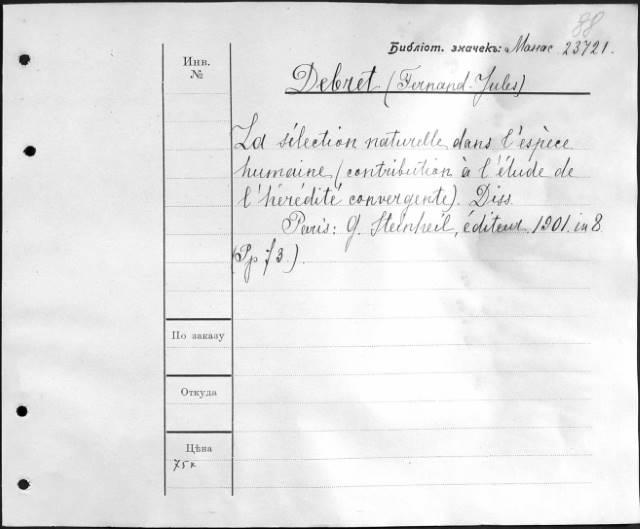 88
Библіот. значекъ: Манас 23721.
Инв.
№
Debret (Fernand-Jules)
La sélection naturelle dans l'espèce
humaine (contribution à l'étude de
l'hérédité convergente). Diss.
Paris: G. Steinheil, éditeur. 1901. in 8
(Pp. 73.)
По заказу
Откуда
Цѣна
75к